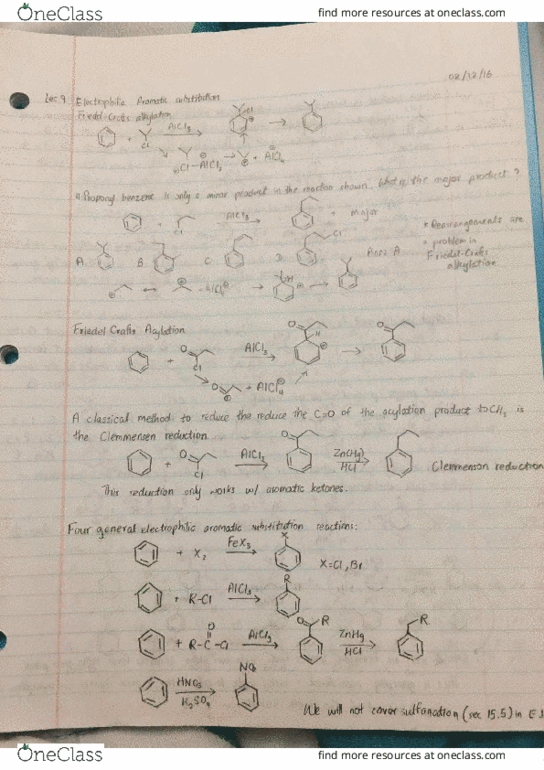 OneClass
find more resources at oneclass.com
02/12/16
Lec 9 Electrophilic Aromatic substitution
Friedel-Crafts alkylation
AlCl3
Cl
n-Propyl benzene is only a minor product in the reaction shown. What is the major product?
AlCl3
+ major
Cl
* Rearrangements are
a problem in
Friedel-Crafts
alkylation
A. B. C. D.
Ans: A
Friedel Crafts Acylation
+ AlCl3
O Cl
+ AlCl4
A classical method to reduce the reduce the C=O of the acylation product to CH2 is
the Clemmensen reduction.
+ AlCl3 Zn(Hg)
HCl
Clemmenson reduction
This reduction only works w/ aromatic ketones.
Four general electrophilic aromatic substitution reactions:
+ X2 FeX3 X X=Cl, Br
+ R-Cl AlCl3 R
+ R-C-Cl AlCl3 O R ZnHg R
HCl
HNO3 NO2
H2SO4
We will not cover sulfanation (sec 15.5) in
OneClass
find more resources at oneclass.com